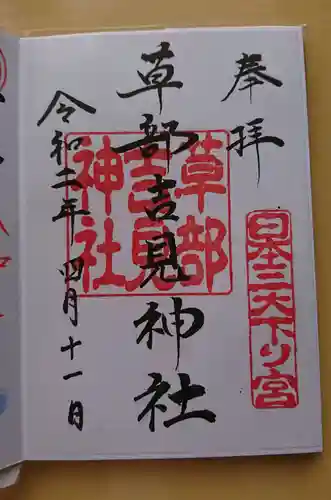 奉拝
日本三大下り宮
草部吉見神社
草部
吉見
神社
令和二年 四月十一日